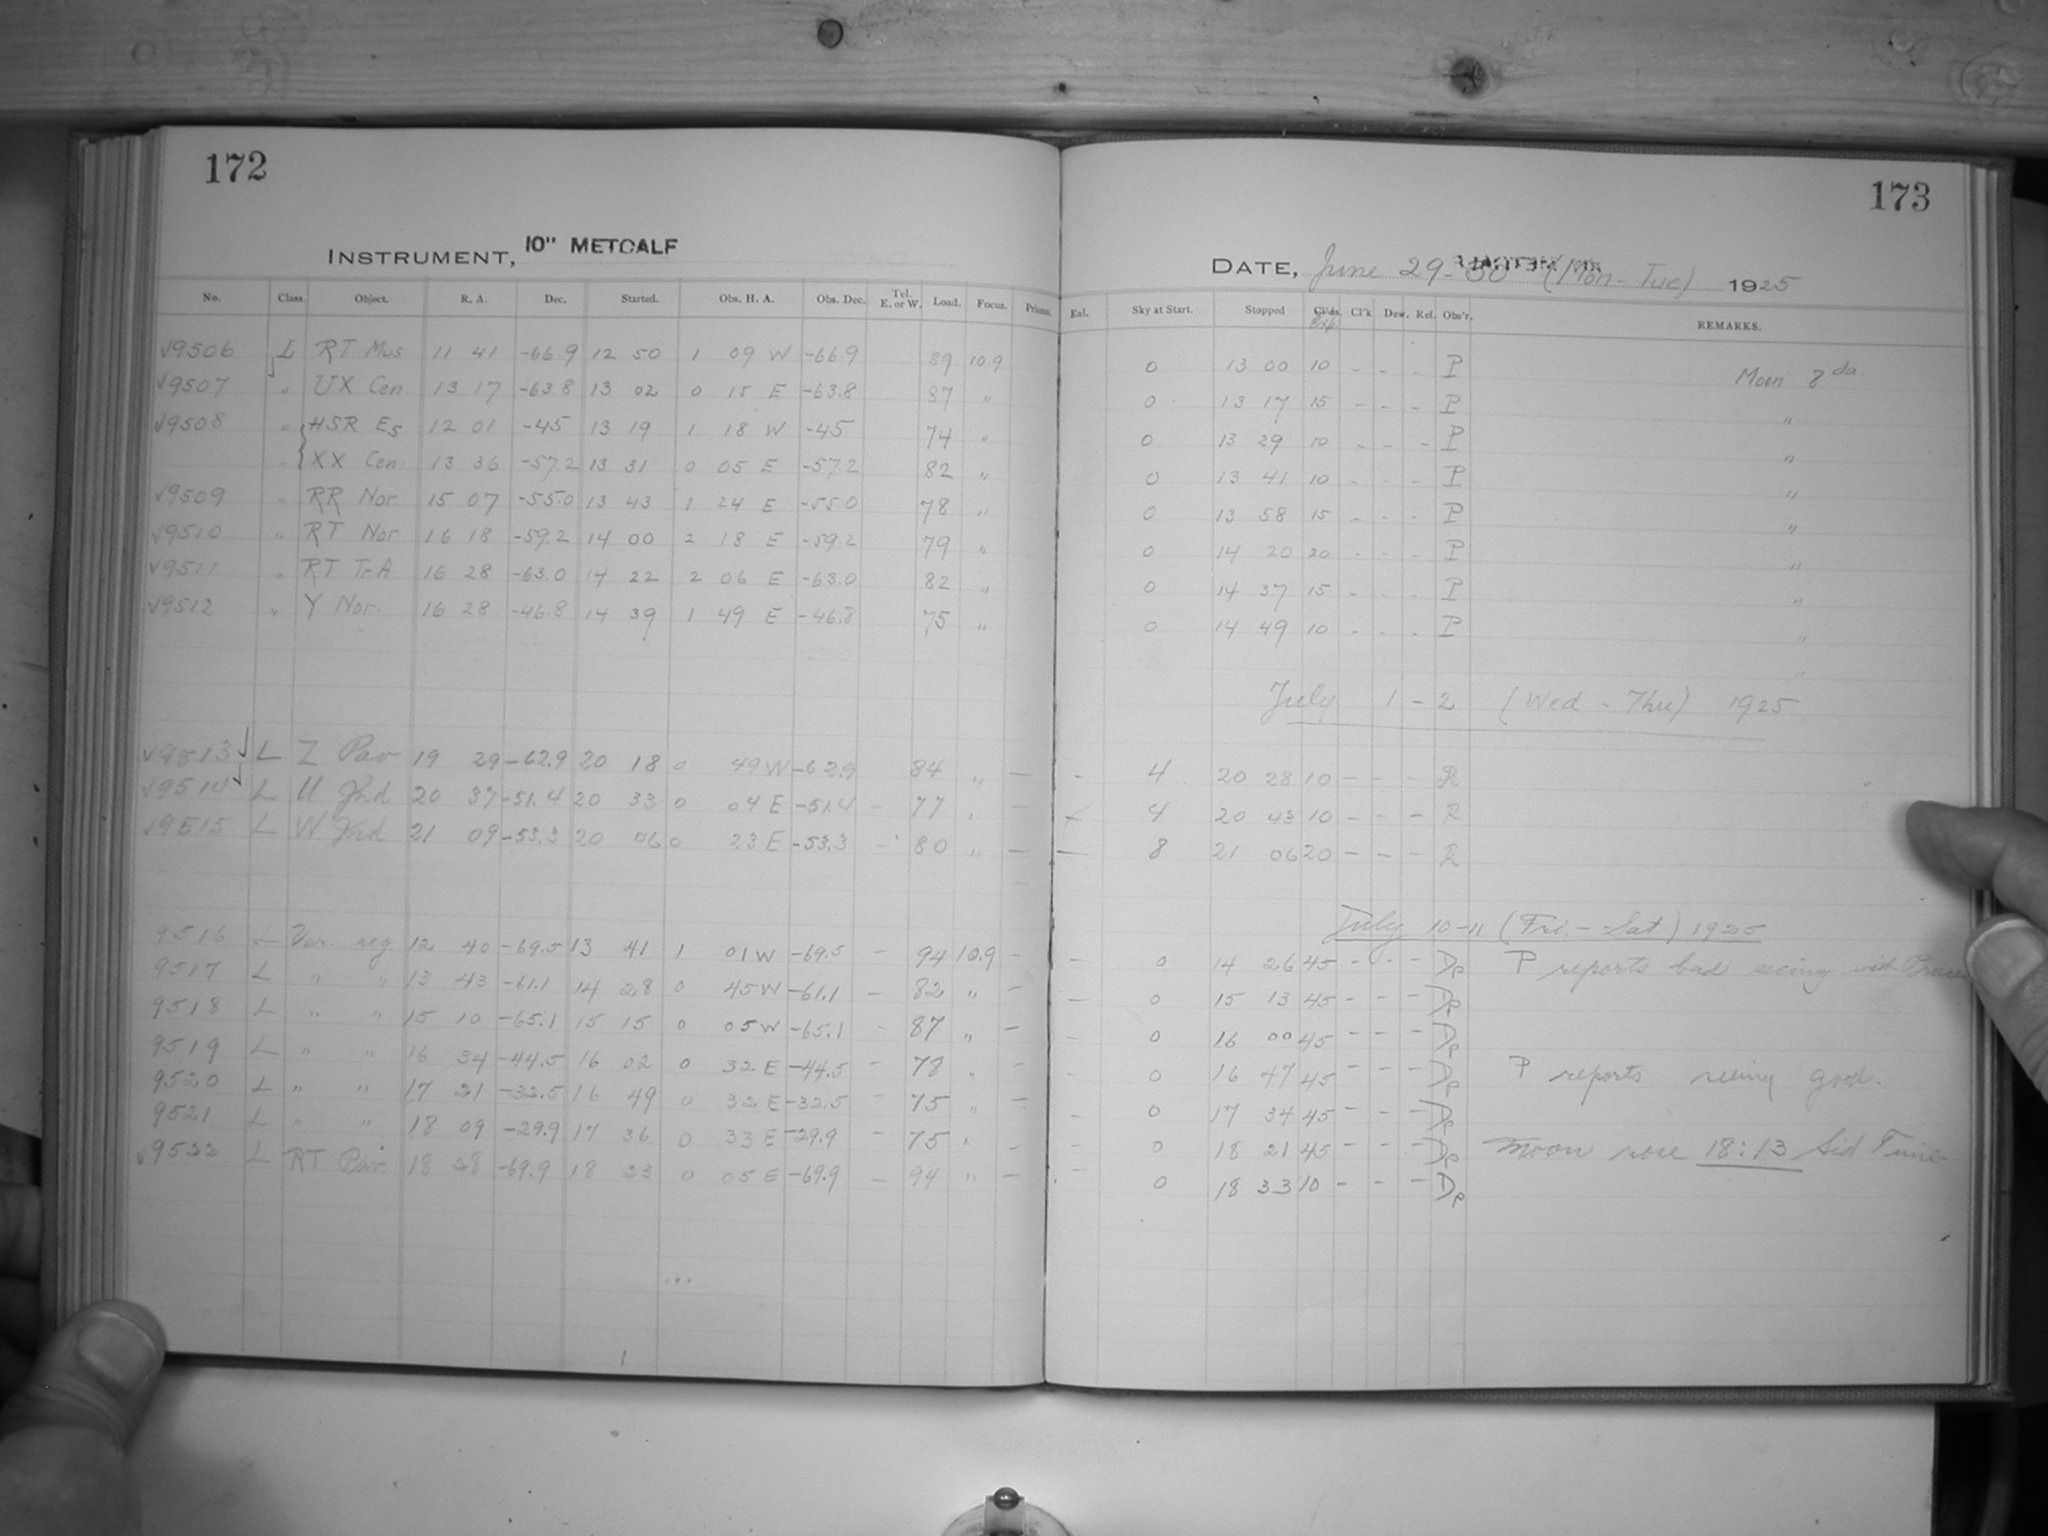 172
INSTRUMENT, 10" METCALF
No. Class. Object. R. A. Dec. Started. Obs. H. A. Obs. Dec. Tel. E. or W. Load. Focus. Prisms.
√9506 L RT Mus 11 41 -66.9 12 50 1 09 W -66.9 89 10.9
√9507 " UX Cen 13 17 -63.8 13 02 0 15 E -63.8 87 "
√9508 " HSR E5 12 01 -45 13 19 1 18 W -45 74 "
" XX Cen 13 36 -57.2 13 31 0 05 E -57.2 82 "
√9509 " RR Nor 15 07 -55.0 13 43 1 24 E -55.0 78 "
√9510 " RT Nor 16 18 -59.2 14 00 2 18 E -59.2 79 "
√9511 " RT TrA 16 28 -63.0 14 22 2 06 E -63.0 82 "
√9512 " Y Nor. 16 28 -46.8 14 39 1 49 E -46.8 75 "
√9513 L Z Pav 19 29 -62.9 20 18 0 49 W -62.9 84 " -
√9514 L U Ind 20 37 -51.4 20 33 0 04 E -51.4 - 77 " -
√9515 L W Ind 21 09 -53.3 20 46 0 23 E -53.3 - 80 " -
9516 L Var. reg 12 40 -69.5 13 41 1 01 W -69.5 - 94 10.9 -
9517 L " " 13 43 -61.1 14 28 0 45 W -61.1 - 82 " -
9518 L " " 15 10 -65.1 15 15 0 05 W -65.1 - 87 " -
9519 L " " 16 34 -44.5 16 02 0 32 E -44.5 - 78 " -
9520 L " " 17 21 -32.5 16 49 0 32 E -32.5 - 75 " -
9521 L " " 18 09 -29.9 17 36 0 33 E -29.9 - 75 " -
√9522 L RT Pav. 18 28 -69.9 18 23 0 05 E -69.9 - 94 " -
173
DATE, June 29-30 (Mon-Tue) 1925
Eal. Sky at Start. Stopped Cl'ds. Exp Cl'k Dew. Ref. Obs'r. REMARKS.
0 13 00 10 - - - P Moon 8 da.
0 13 17 15 - - - P "
0 13 29 10 - - - P "
0 13 41 10 - - - P "
0 13 58 15 - - - P "
0 14 20 20 - - - P "
0 14 37 15 - - - P "
0 14 49 10 - - - P "
July 1-2 (Wed - Thu) 1925
- 4 20 28 10 - - - R
4 20 43 10 - - - R
- 8 21 06 20 - - - R
July 10-11 (Fri - Sat) 1925
- 0 14 26 45 - - - P reports bad seeing with
- 0 15 13 45 - - -
- 0 16 00 45 - - -
- 0 16 47 45 - - - P reports seeing good.
- 0 17 34 45 - - -
- 0 18 21 45 - - - Moon rose 18:13 Sid. Time
0 18 33 10 - - -